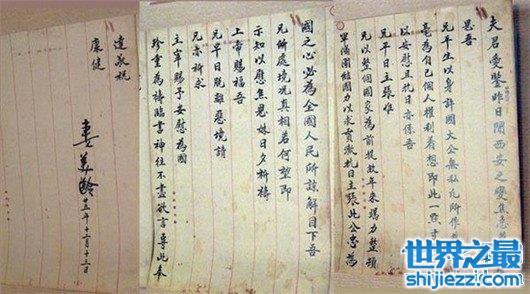 夫君愛鑒昨日聞西安之變焦急
思吾
兄平生以身許國大公無私凡所作
毫為自己個人權利着想即此一點寸
以安慰且抗日亦係吾
兄平日主張惟
兄以整個國家為前提故年來竭力整頓
軍備團結國力以求貫澈抗日主張此公忠為
國之心必為全國人民所諒解目下吾
兄所處境況真相若何望即
示知以慰焦思妹日夕祈禱
上帝賜福吾
兄早日脫離惡境請
兄亦祈求
主宰賜予安慰為國
珍重為禱臨書神往不盡欲言專此奉
達敬祝
康健
妻美齡
廿五年十二月十三日
世界之最
shijiezzi.com